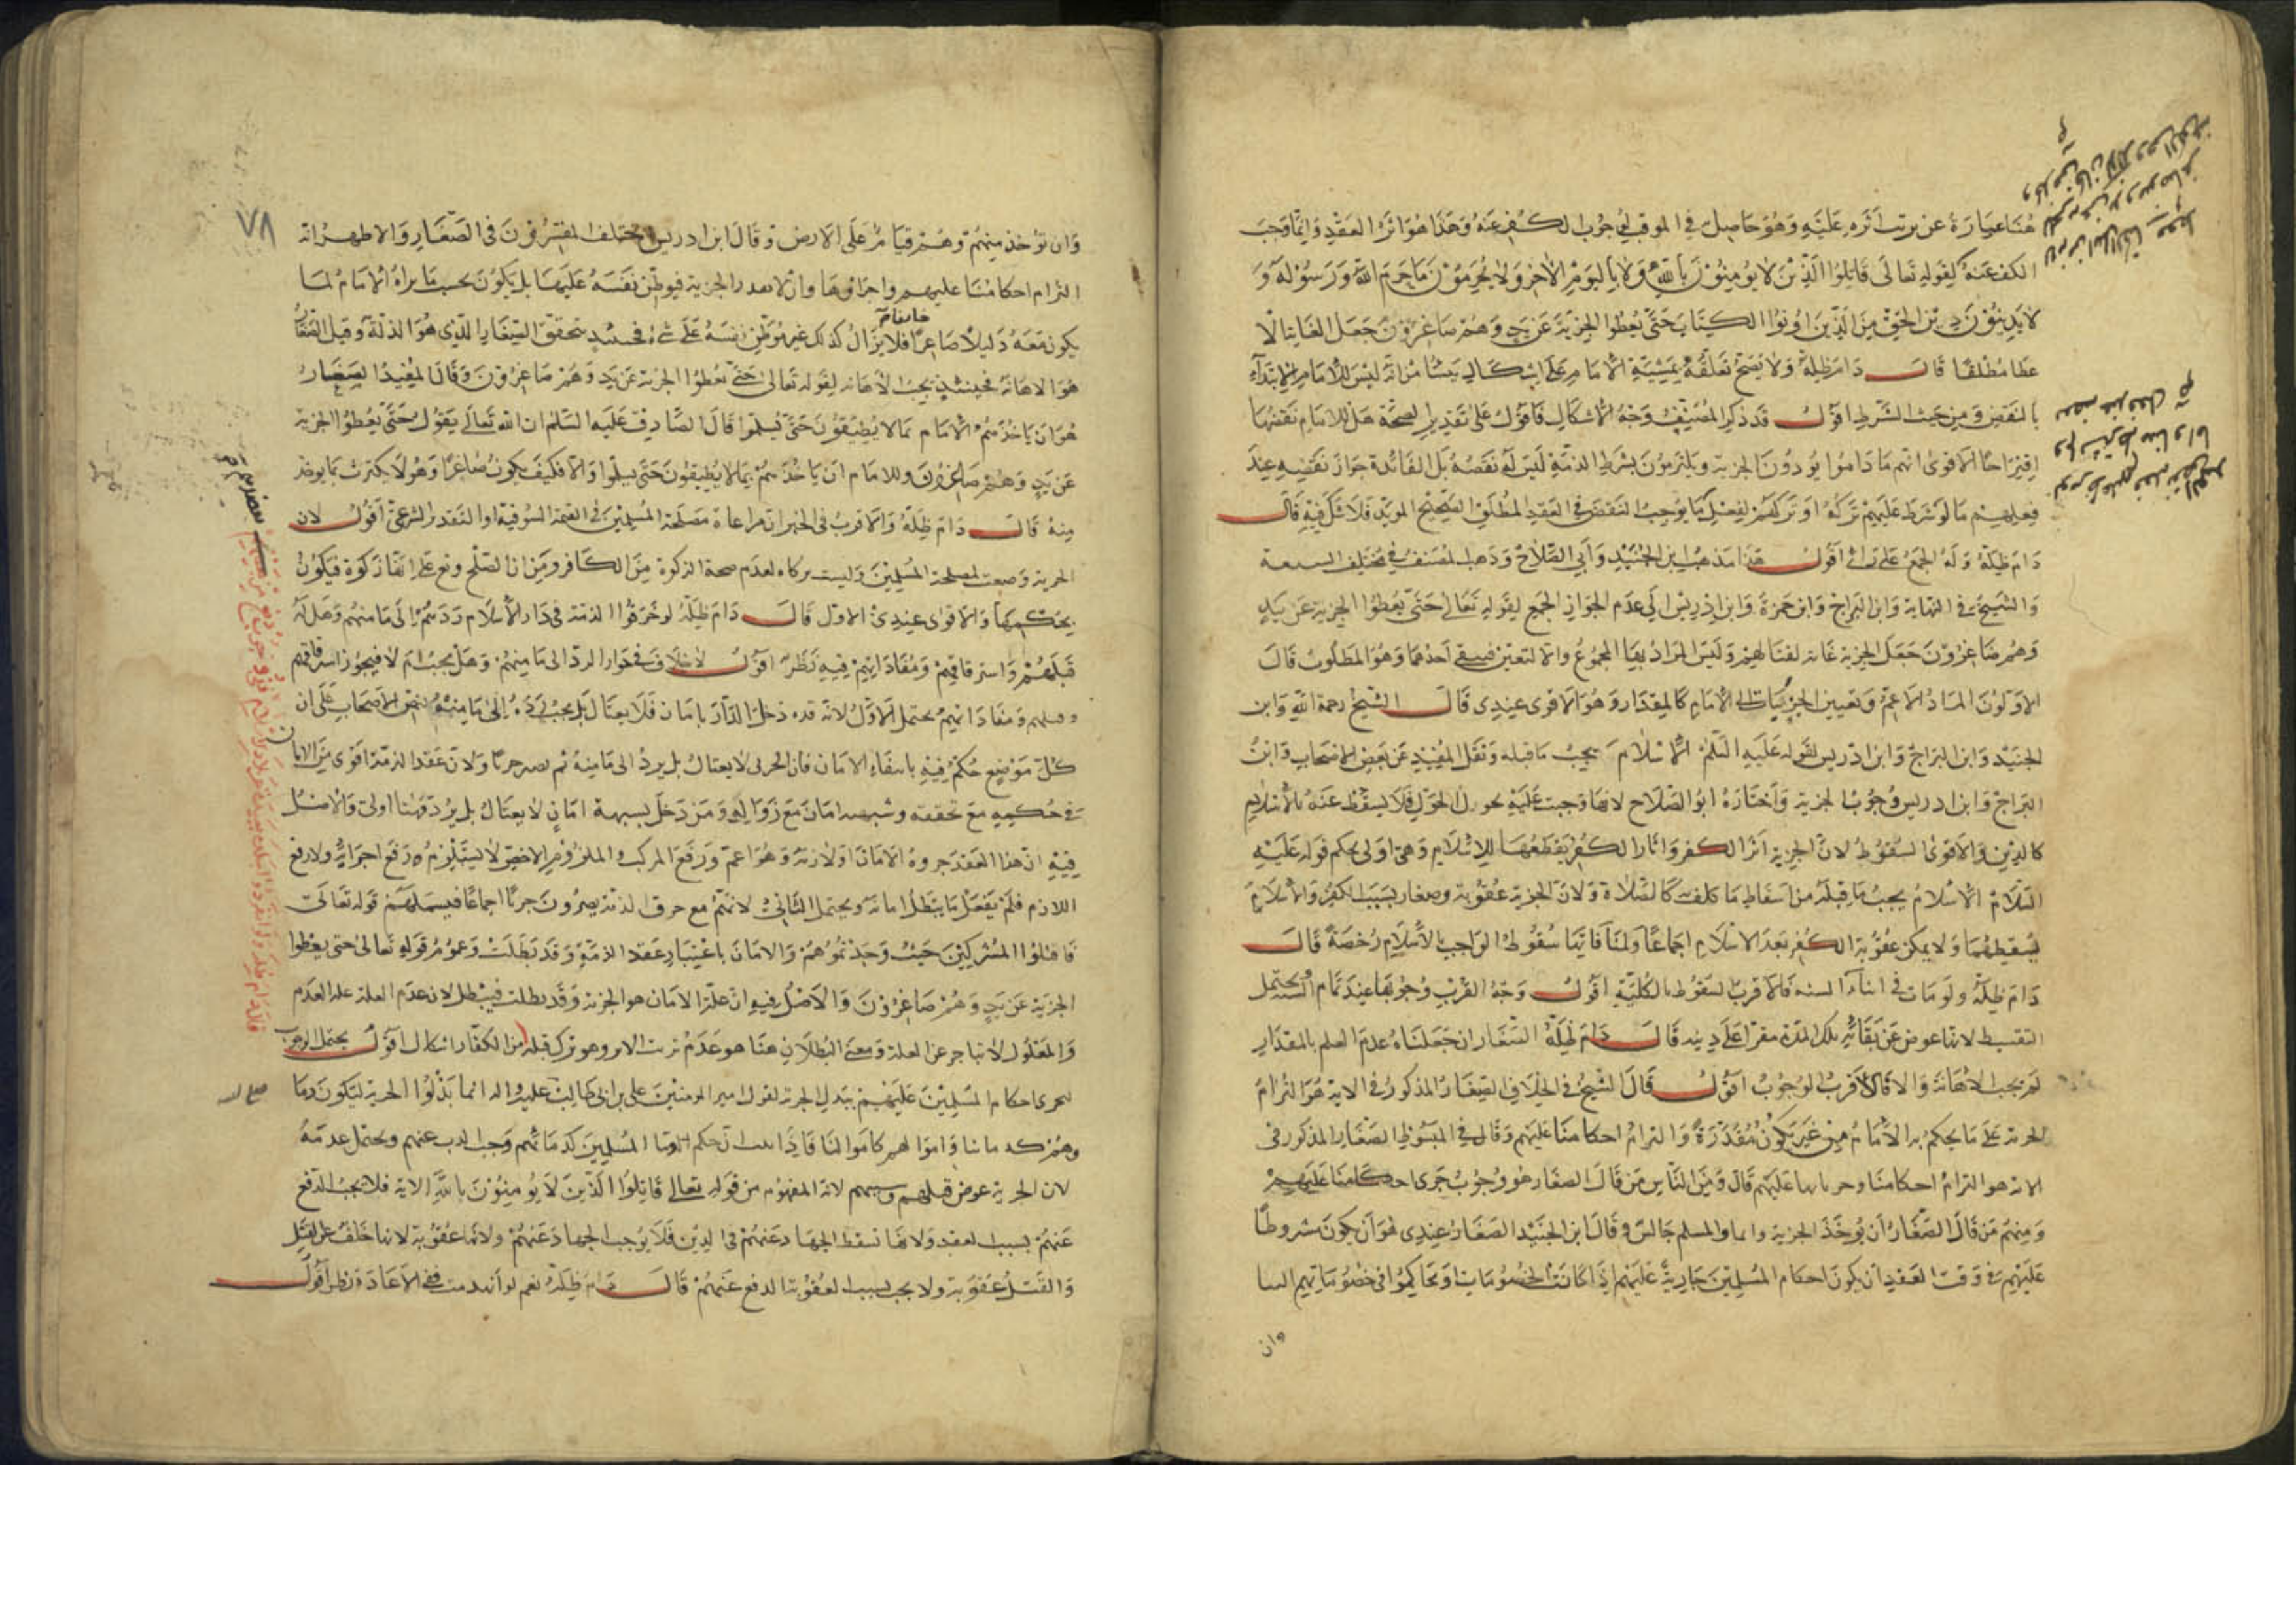 هنا عبارة عن ترتب اثره عليه وهو حاصل في الموقت لوجوب الكف عنه وهذا هو اثر العقد وانما وجب
الكف عنه لقوله تعالى قاتلوا الذين لا يؤمنون بالله ولا باليوم الاخر ولا يحرمون ما حرم الله ورسوله و
لا يدينون دين الحق من الذين اوتوا الكتاب حتى يعطوا الجزية عن يد وهم صاغرون جعل الغاية الا
عطا مطلقا قال دام ظله ولا يصح تعلقه بمشية الامام على اشكال ينشا من انه ليس للامام الابتداء
بالنقض ومن حيث الشرط اقول قد ذكر المصنف وجه الاشكال فاقول على تقدير الصحة هل للامام نقضها
اقتراحا الاقوى انهم ما داموا يؤدون الجزية ويلتزمون بشرائط الذمة ليس له نقضه بل الفائدة جواز نقضه عند
فعلهم ما لو شرط عليهم تركه او تركهم لفعل ما يوجب النقض في العقد المطلق الصحيح المؤبد فلا شك فيه قال
دام ظله وله الجمع على راى اقول هذا مذهب ابن الجنيد وابي الصلاح وذهب المصنف في مختلف الشيعة
والشيخ في النهاية وابن البراج وابن حمزة وابن ادريس الى عدم الجواز الجمع لقوله تعالى حتى يعطوا الجزية عن يد
وهم صاغرون جعل الجزية غاية لقتالهم وليس المراد بها المجموع والا لتعين فيبقى احدهما وهو المطلوب قال
الاولون المراد الاعم وتعيين الجزئيات الى الامام كالمقدار وهو الاقوى عندى قال الشيخ رحمة الله وابن
الجنيد وابن البراج وابن ادريس لقوله عليه السلم الاسلام يجب ما قبله ونقل المفيد عن بعض الاصحاب وابن
البراج وابن ادريس وجوب الجزية واختاره ابو الصلاح لانها وجبت عليه بحول الحول فلا يسقط عنه بالاسلام
كالدين والاقوى السقوط لان الجزية اثر الكفر واثار الكفر يقطعها الاسلام وهي اولى بحكم قوله عليه
السلام الاسلام يجب ما قبله من اسقاط ما كلف كالصلاة ولان الجزية عقوبة وصغار بسبب الكفر والاسلام
يسقطهما ولا يمكن عقوبة الكفر بعد الاسلام اجماعا ولمنافاتها سقوط الواجب بالاسلام رخصة قال
دام ظله ولو مات في اثناء السنه فالاقرب السقوط بالكلية اقول وجه القرب وجوبها عند تمام السنه ويحتمل
التقسيط لانها عوض عن بقائه تلك المدة مقرا على دينه قال دام ظله الصغار ان جعلناه عدم العلم بالمقدار
لم يجب الاهانة والا فالاقرب الوجوب اقول قال الشيخ في الخلاف الصغار المذكور في الاية هو التزام
الجزية على ما يحكم به الامام من غير يكون مقدرة والتزام احكامنا عليهم وقال في المبسوط الصغار المذكور في
الاية هو التزام احكامنا وجريانها عليهم قال ومن الناس من قال الصغار هو وجوب جرى احكامنا عليهم
ومنهم من قال الصغار ان يوخذ الجزية قائما والمسلم جالس وقال ابن الجنيد الصغار عندى هو ان يكون مشروطا
عليهم في وقت العقد ان يكون احكام المسلمين جارية عليهم اذا كانت الخصومات او تحاكموا في خصوماتهم الينا
وان
٧٨
وان توخذ منهم وهم قيام على الارض وقال ابن ادريس اختلف المفسرون في الصغار والاظهر انه
التزام احكامنا عليهم واجراؤها وان لا يقدر الجزية فيوطن نفسه عليها بل يكون بحسب ما يراه الامام لما
يكون معه ذليلا صاغرا فلا يزال كذلك غير موطن نفسه على شئ فحينئذ يتحقق الصغار الذي هو الذلة وقيل الصغار
هو الاهانة فحينئذ يجب الاهانه لقوله تعالى حتى يعطوا الجزية عن يد وهم صاغرون وقال المفيد الصغار
هو ان ياخذهم الامام بما لا يطيقون حتى يسلموا قال الصادق عليه السلم ان الله تعالى يقول حتى يعطوا الجزية
عن يد وهم صاغرون وللامام ان ياخذهم بما لا يطيقون حتى يسلموا والا فكيف يكون صاغرا وهو لا يكترث بما يوخذ
منه قال دام ظله والاقرب في الخيرات مراعاة مصلحة المسلمين في القيمة السوقية او التقدير الشرعي اقول لان
الجزية وضعت لمصلحة المسلمين وليست بزكاه لعدم صحة الزكوة من الكافر ومن ان الصلح وقع على انها زكوة فيكون
بحكمها والاقوى عندى الاول قال دام ظله لو خرقوا الذمة في دار الاسلام ردهم الى مامنهم وهل له
قتلهم واسترقاقهم ومفاداتهم فيه نظر اقول لا خلاف في جواز الرد الى مامنهم وهل يجب ام لا فيجوز استرقاقهم
وقتلهم ومفاداتهم يحتمل الاول لانه قد دخل الدار بامان فلا يغتال بل يجب رده الى مامنه لنص الاصحاب على ان
كل موضع حكم فيه بانتفاء الامان فان الحربي لا يغتال بل يرد الى مامنه ثم يصير حربا ولان عقد الذمة اقوى من الامان
في حكمه مع تحققه وشبهة امان مع زواله ومن دخل بشبهة امان لا يغتال بل يرد فهنا اولى والاصل
فيه ان هذا العقد جزءه الامان او لازمه وهو اعم ورفع المركب والملزوم الاخص لا يستلزم رفع اجزائه ولا رفع
اللازم فلم يفعل ما يبطل امانه ويحتمل الثاني لانهم مع خرق الذمة يصيرون حربا اجماعا فيشملهم قوله تعالى
فاقتلوا المشركين حيث وجدتموهم والامان باعتبار عقد الذمة وقد بطلت وعموم قوله تعالى حتى يعطوا
الجزية عن يد وهم صاغرون والاصل فيه ان علة الامان هو الجزية وقد بطلت فيبطل لان عدم العلة علة العدم
والمعلول لا يتاخر عن العلة ومعنى البطلان هنا هو عدم ترتب الاثر وهو ترك قتله من الكفار اشكال اقول يحتمل الوجوب
لجرى احكام المسلمين عليهم ببذل الجزية لقول امير المومنين على بن ابى طالب عليه السلم انما بذلوا الجزية ليكون دماؤ
هم كدمائنا واموالهم كاموالنا فاذا حكم المسلمين كدمائهم وجب الذب عنهم ويحتمل عدمه
لان الجزية عوض قتلهم وسبيهم لانه المفهوم من قوله تعالى قاتلوا الذين لا يومنون بالله الاية فلا يجب الدفع
عنهم بسبب العقد ولانها تسقط الجهاد عنهم في الدين فلا يوجب الجهاد عنهم ولانها عقوبة لانها خلف عن القتل
والقتل عقوبة ولا يجب بسبب العقوبة الدفع عنهم قال دام ظله نعم لو انهدمت ففي الاعادة نظر اقول